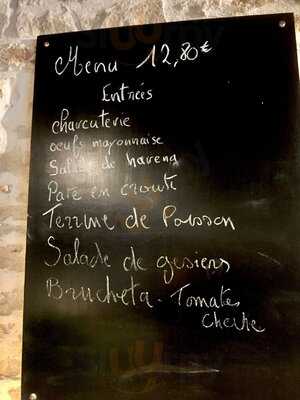 Menu 12,80€
Entrées
charcuterie
oeufs mayonnaise
Salade de hareng
Paté en croute
Terrine de Poisson
Salade de gesiers
Brucheta. Tomates
chevre